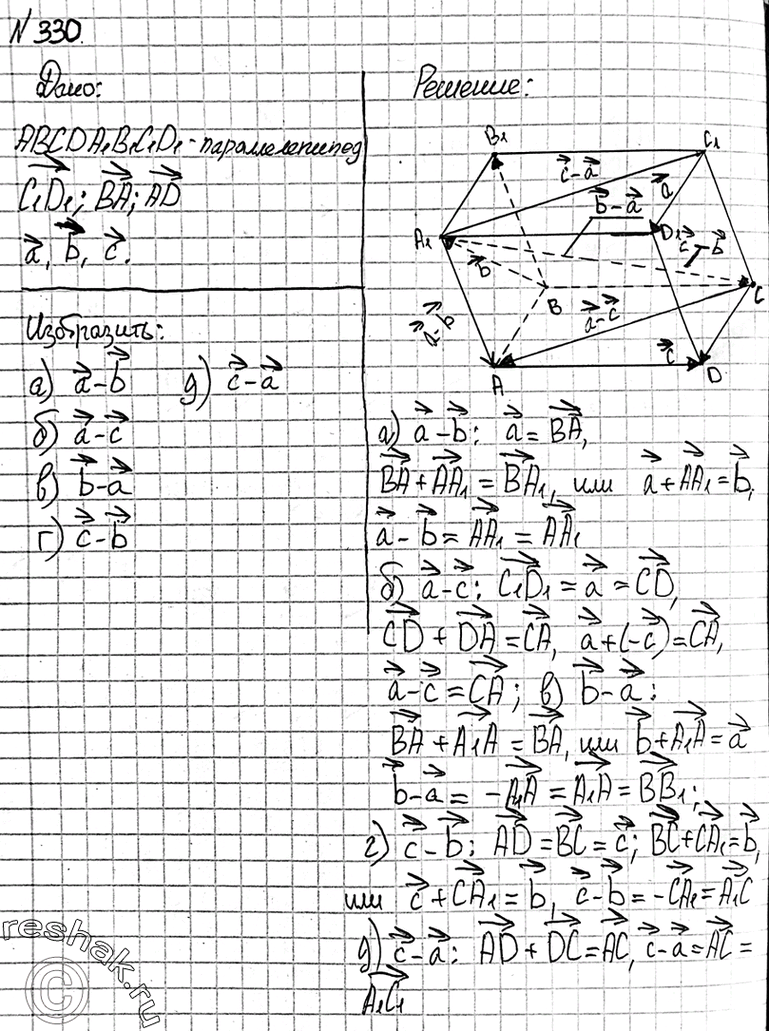 N 330.
Дано:
ABCDA₁B₁C₁D₁ - параллелепипед
C₁D₁⃗; BA⃗; AD⃗
a⃗, b⃗, c⃗.
Изобразить:
а) a⃗-b⃗ д) c⃗-a⃗
б) a⃗-c⃗
в) b⃗-a⃗
г) c⃗-b⃗
Решение:
B₁ C₁
c⃗-a⃗ a⃗
b⃗-a⃗
A₁ D₁ c⃗-b⃗
b⃗
B a⃗-c⃗ C
a⃗-b⃗
c⃗
A D
а) a⃗-b⃗: a⃗=BA⃗,
BA⃗+AA₁⃗=BA₁⃗, или a⃗+AA₁⃗=b⃗,
a⃗-b⃗=AA₁⃗=AA₁⃗
б) a⃗-c⃗: C₁D₁⃗=a⃗=CD⃗,
CD⃗+DA⃗=CA⃗, a⃗+(-c⃗)=CA⃗,
a⃗-c⃗=CA⃗; в) b⃗-a⃗:
BA⃗+A₁A⃗=BA⃗, или b⃗+A₁A⃗=a⃗
b⃗-a⃗=-A₁A⃗=A₁A⃗=BB₁⃗;
г) c⃗-b⃗: AD⃗=BC⃗=c⃗; BC⃗+CA₁⃗=b⃗,
или c⃗+CA₁⃗=b⃗, c⃗-b⃗=-CA₁⃗=A₁C⃗
д) c⃗-a⃗: AD⃗+DC⃗=AC⃗, c⃗-a⃗=AC⃗=
A₁C₁⃗
reshak.ru
©